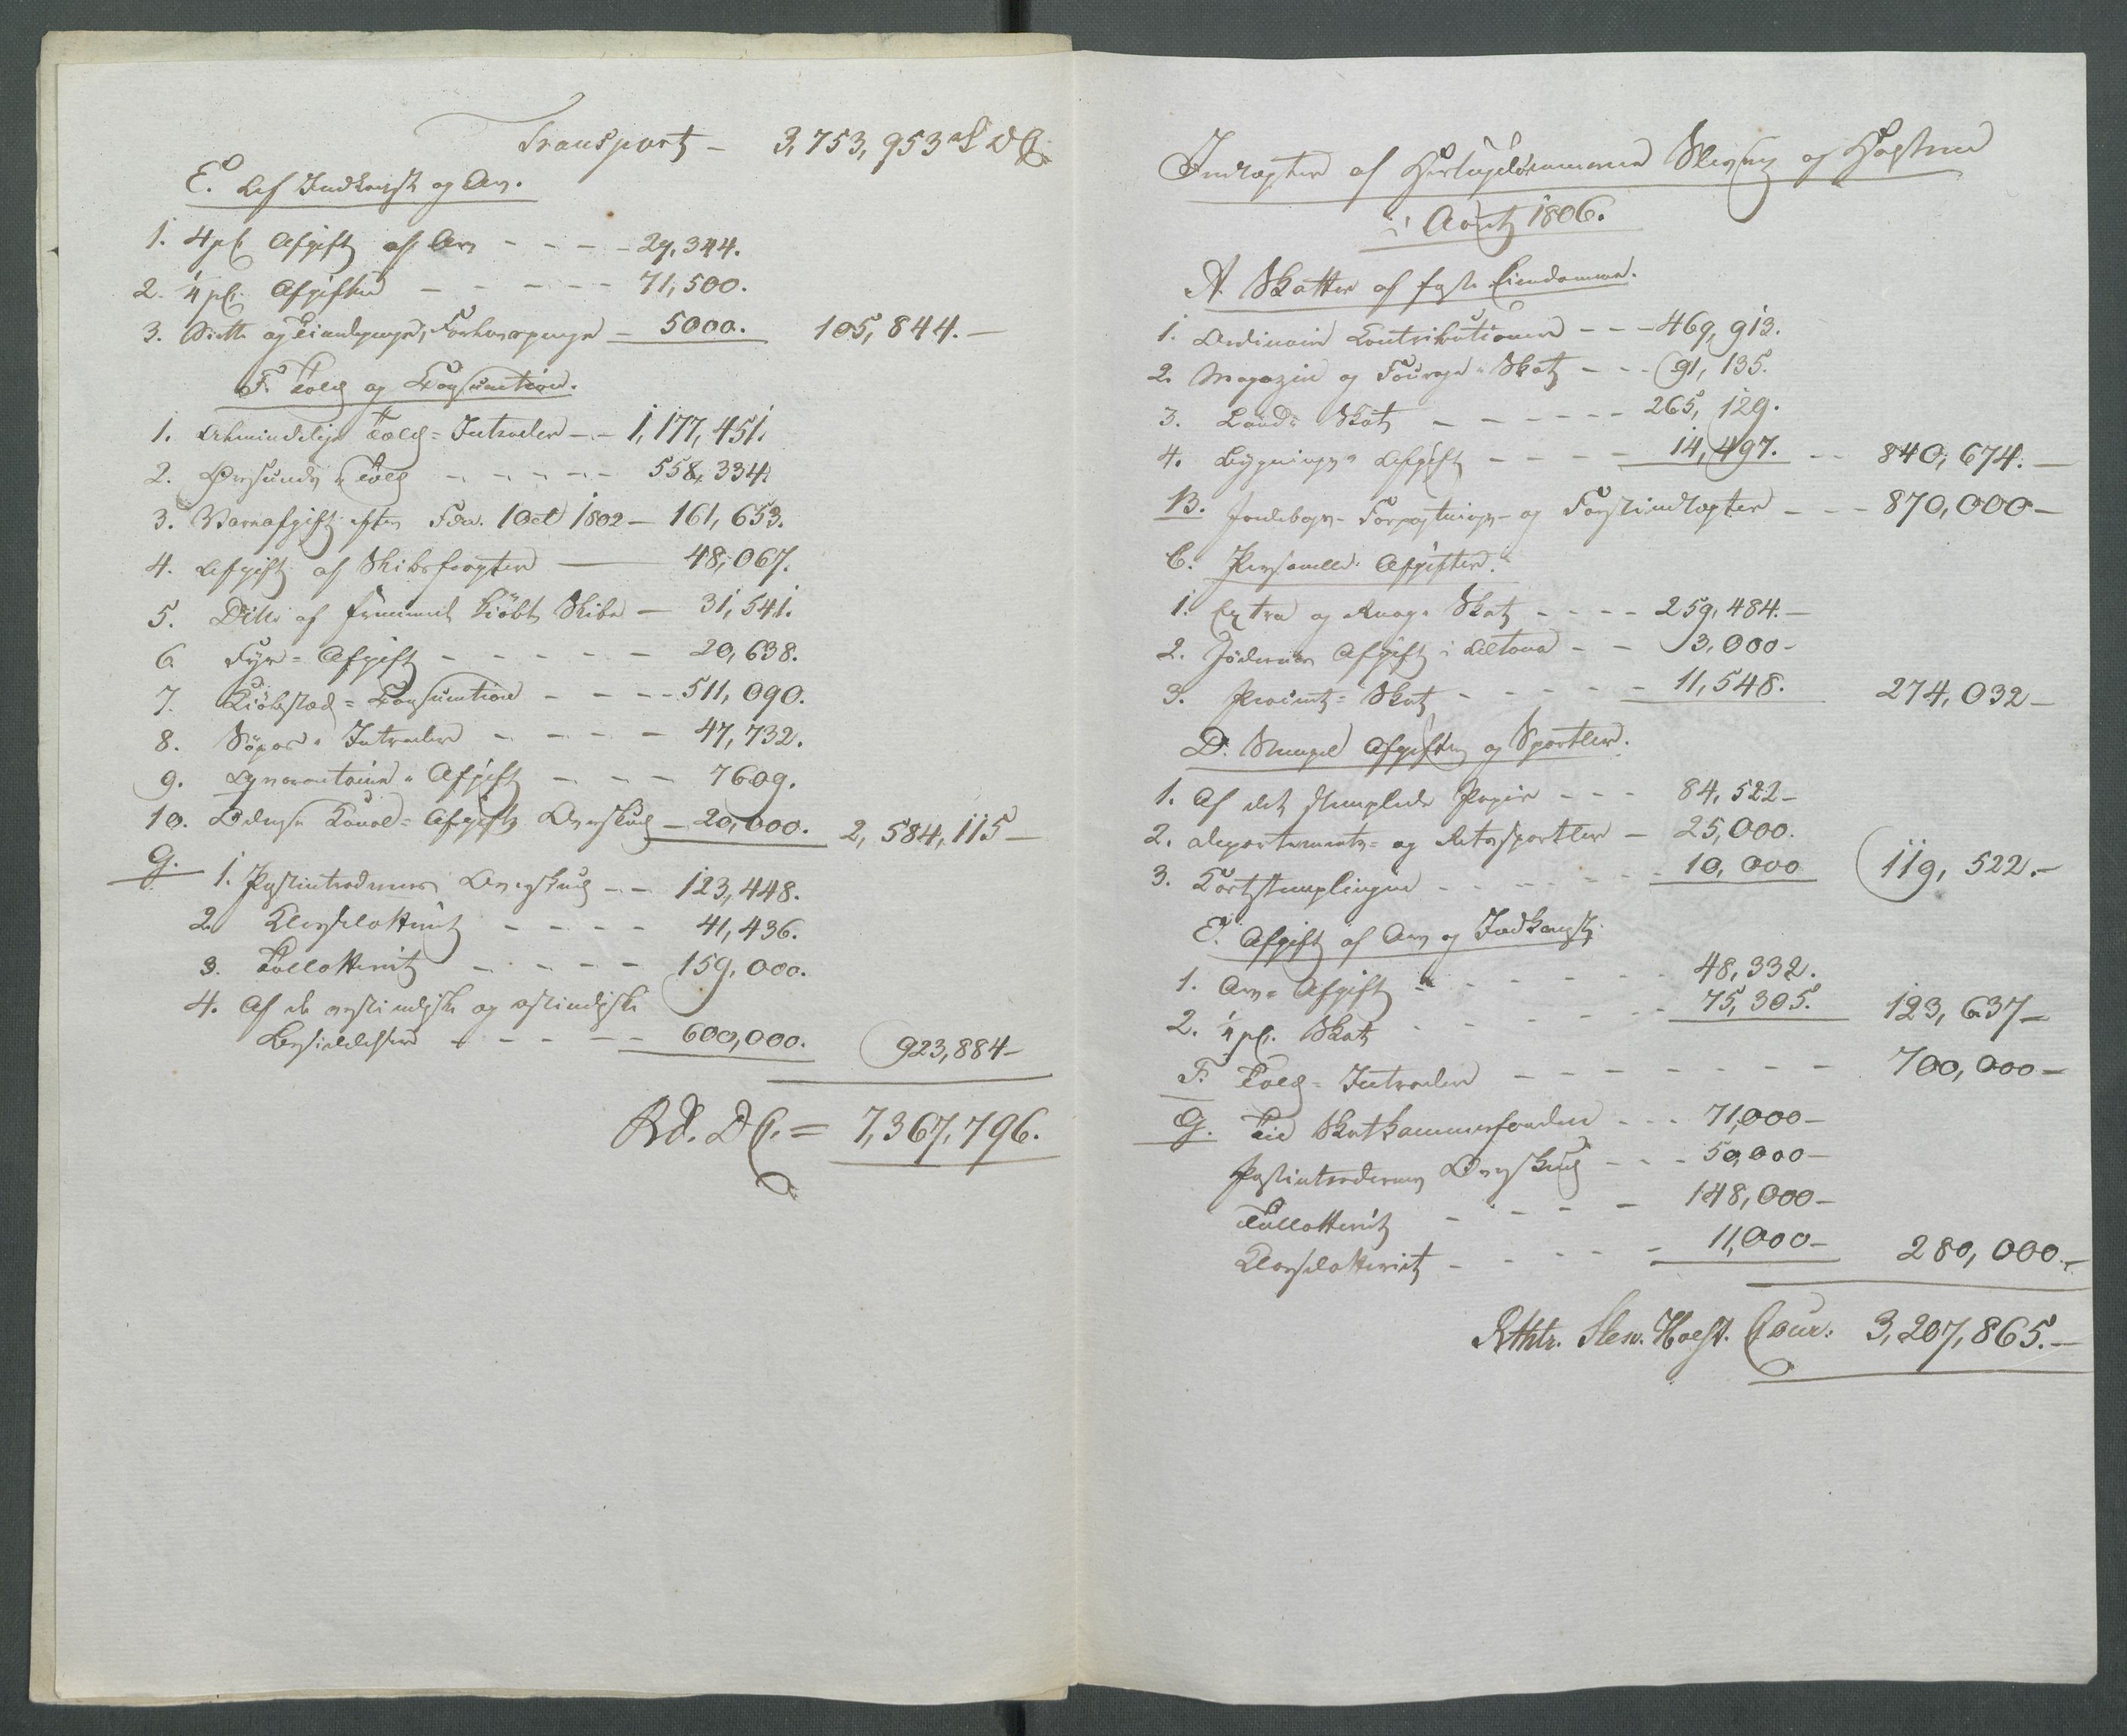 Transport – 3,753,953 rd DC.
E. Af Indkomst og Arv.
1. 4 pCt Afgift af Arv - - - - 29,344.
2. ¼ pCt. Afgiften - - - - - 71,500.
3. Siette og Tiendepenge, Forlovspenge – 5000. 105,844.–
F. Told og Consumtion.
1. Almindelige Told-Intrader – – 1,177,451.
2. Øresunds Told - - - - - 558,334.
3. Vareafgift efter Fdn. 1 Oct 1802 – 161,653.
4. Afgift af Skibsfragter — 48,067.
5. Ditto af fremmed kiöbte Skibe – 31,541.
6. Fyr-Afgift - - - - - 20,638.
7. Kiöbstad-Consumtion - - - - 511,090.
8. Söpas-Intrader - - - - 47,732.
9. Qvarantaine-Afgift - - - 7609.
10. Odense Kanal-Afgifts Overskud – 20,000. 2,584,115 –
G. 1. Postintradernes Overskud - - 123,448.
2. Klasselotteriet - - - - 41,436.
3. Tallotteriet - - - - - 159,000.
4. Af de vestindiske og ostindiske
Besiddelser - - - - - 600,000. 923,884 –
Rd. DC. = 7,367,796.
Indtægter af Hertugdömmerne Slesvig og Holsteen
i Aaret 1806.
A. Skatter af faste Eiendomme.
1. Ordinaire Contributioner - - - 469,913.
2. Magazin og Fourage-Skat - - - 91,135.
3. Land-Skat - - - - - - 265,129.
4. Bygnings-Afgift - - - - - 14,497. - - 840,674. –
B. Jordebogs- Forpagtnings- og Forstindtægter - - - 870,000 –
C. Personelle Afgifter.
1. Extra og Rang-Skat - - - - 259,484. –
2. Jödernes Afgift i Altona - - 3,000 –
3. Procent-Skat - - - - - 11,548. 274,032 –
D. Stempel Afgifter og Sportler.
1. Af det stemplede Papir - - - 84,522 –
2. Departements- og Retssportler – 25,000.
3. Kortstemplingen - - - - - - - 10,000 119,522. –
E. Afgift af Arv og Indkomst.
1. Arve-Afgift - - - - - 48,332.
2. ¼ pCt. Skat - - - - - - 75,305. 123,637 –
F. Told-Intrader - - - - - - - - 700,000 –
G. Til Skatkammerfonden - - - 71,000 –
Postintradernes Overskud - - - 50,000 –
Tallotteriet - - - - - 148,000 –
Klasselotteriet - - - - - 11,000 – 280,000. –
Rthlr. Slesv. Holst. Cour. 3,207,865. –